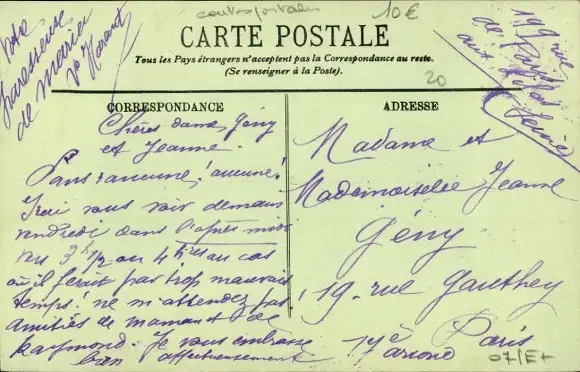 10€
CARTE POSTALE
Tous les Pays étrangers n'acceptent pas la Correspondance au recto.
(Se renseigner à la Poste).
20
CORRESPONDANCE
Chères dame Gény
et Jeanne.
Sans rancune! aucune!
J'irai vous voir demain
vendredi dans l'après midi
vers 3h 1/2 ou 4 hres au cas
où il ferait par trop mauvais
temps! ne m'attendez pas
amitiés de maman et de
Raymond. Je vous embrasse
bien affectueusement
Votre
paresseuse
de marie
Vo
ADRESSE
Madame et
Mademoiselle Jeanne
Gény
19. rue Gauthey
17è arrond Paris
199 rue
de Paris
07/E+